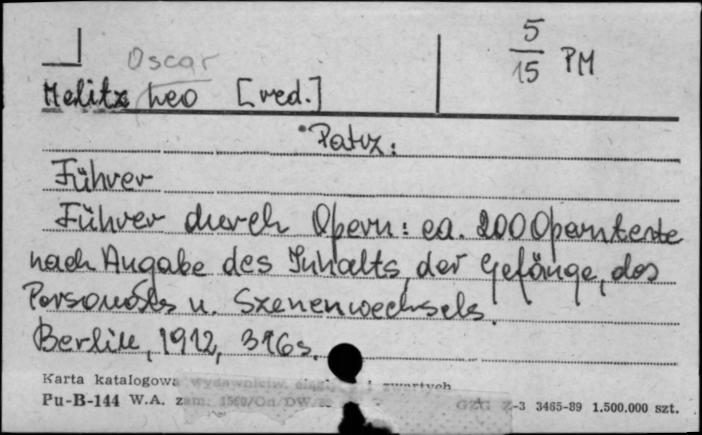 Oscar
5
15 PM
Melitz Leo [red.]
Patrz:
Führer
Führer durch Opern: ca. 200 Operntexte
nach Angabe des Inhalts, der Gesänge, des
Personals u. Szenenwechsels.
Berlin, 1912, 316 s.
Karta katalogowa wydawnictw ciągłych i zwartych
Pu-B-144 W.A. zam. GZG Z-3 3465-89 1.500.000 szt.